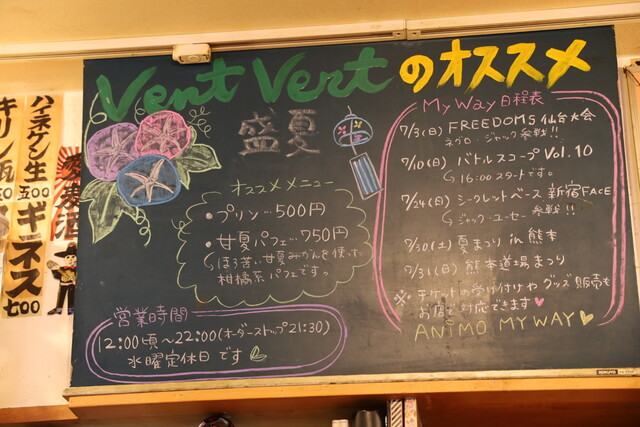 Vent Vertのオススメ
盛夏
オススメメニュー
・プリン…500円
・甘夏パフェ…750円
ほろ苦い甘夏みかんを使った
柑橘系パフェです。
営業時間
12:00頃〜22:00(オーダーストップ21:30)
水曜定休日です
My Way日程表
7/3(日) FREEDOMS 仙台大会
ネグロ・ジャック参戦!!
7/10(日) バトルスコープ Vol.10
16:00スタートです。
7/24(日) シークレットベース 新宿FACE
ジャック・ユーセー参戦!!
7/30(土) 夏まつり in 熊本
7/31(日) 熊本道場まつり
※チケットの受け付けやグッズ販売も
お店で対応できます♥
ANIMO MY WAY
ハイネケン生
五00
キリン瓶
麦酒
ギネス
七00